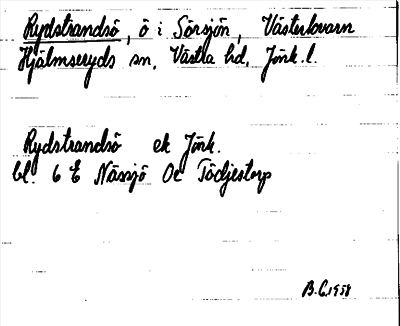 Rydstrandsö, ö i Sörsjön, Västerkvarn
Hjälmseryds sn, Västra hd, Jönk. l.
Rydstrandsö ek Jönk.
bl. 6 E Nässjö Oc Tådjestorp
B.C. 1958